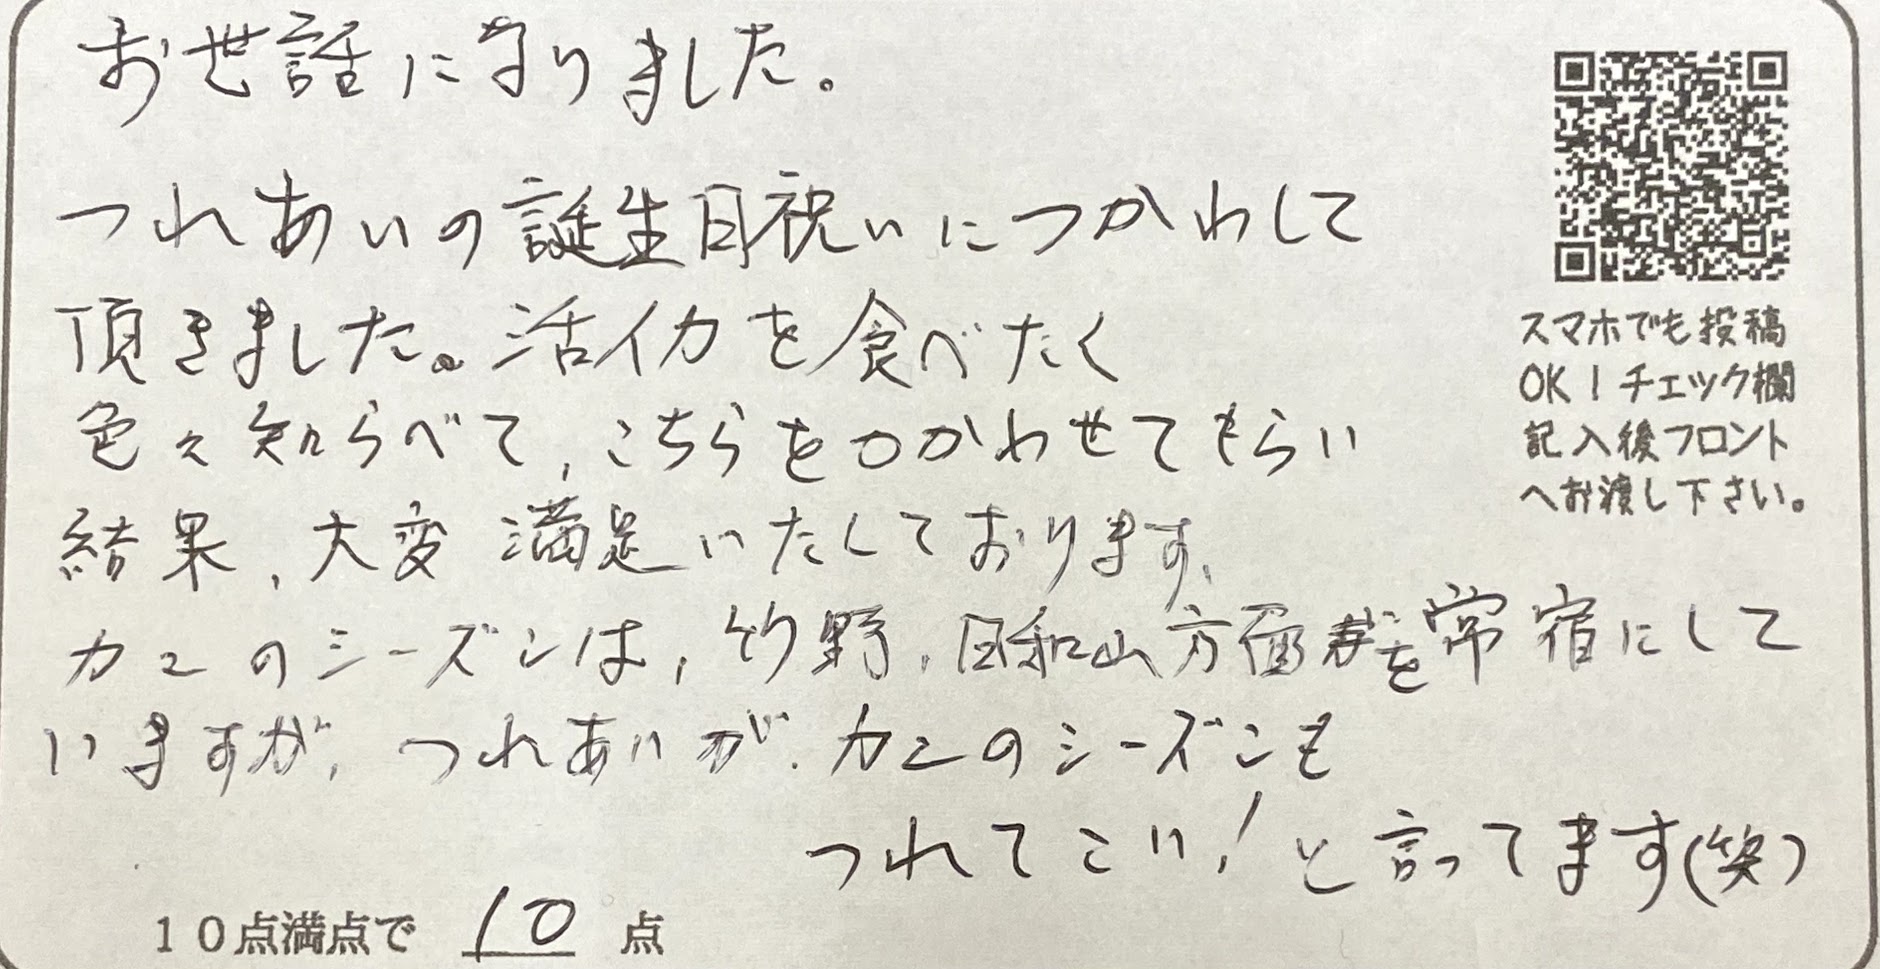 お世話になりました。
つれあいの誕生日祝いにつかわして
頂きました。活イカを食べたく
色々知らべて、こちらをつかわせてもらい
結果、大変満足いたしております、
カニのシーズンは、竹野、日和山方面を常宿にして
いますが、つれあいが、カニのシーズンも
つれてこい！と言ってます(笑)
スマホでも投稿
OK！チェック欄
記入後フロント
へお渡し下さい。
10点満点で 10 点